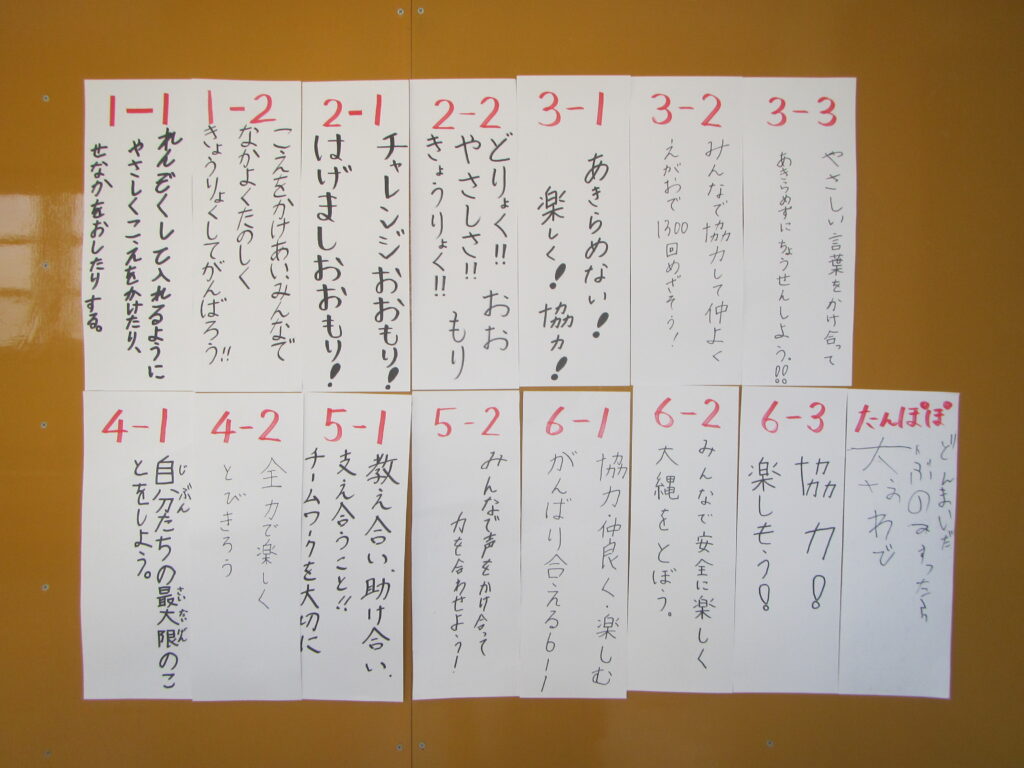 1-1
れんぞくして入れるように
やさしくこえをかけたり、
せなかをおしたりする。
1-2
こえをかけあい、みんなで
なかよくたのしく
きょうりょくしてがんばろう!!
2-1
チャレンジおおもり!
はげましおおもり!
2-2
どりょく!! おお
やさしさ!! もり
きょうりょく!!
3-1
あきらめない!
楽しく! 協力!
3-2
みんなで協力して仲よく
えがおで1300回めざそう!
3-3
やさしい言葉をかけ合って
あきらめずにちょうせんしよう!!
4-1
自分たちの最大限のこ
じぶん さいだいげん
とをしよう。
4-2
全力で楽しく
とびきろう
5-1
教え合い、助け合い、
支え合うこと!!
チームワークを大切に
5-2
みんなで声をかけ合って
力を合わせよう!
6-1
協力・仲良く・楽しむ
がんばり合える6-1
6-2
みんなで安全に楽しく
大縄をとぼう。
6-3
協力!
楽しもう!
たんぽぽ
どんまいだ
大なわで